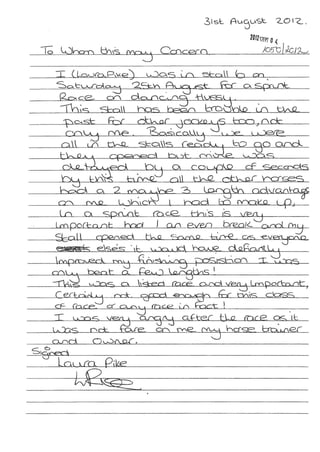 31st August 2012.
2012 SEP 04
To Whom this may Concern
1050/2012
I (Laura Pike) was in stall 6 on
Saturday 25th August for a sprint
Race on dancing Hussy.
This stall has been trouble in the
past for other jockeys too, not
only me. Basically we were
all in the stalls ready to go and
they opened but mine was
delayed by a couple of seconds
by this time all the other horses
had a 2 maybe 3 length advantage
on me which I had to make up,
in a sprint race this is very
important had I an even break and my
stall opened the same time as everyone
else's it would have defantly
improved my finishing posistion I was
only beat a few lengths!
This was a listed race and very important,
Certainly not good enough for this class
of race or any race in fact!
I was very angry after the race as it
was not faire on me my horse trainer
and owner.
Signed
Laura Pike
LPike